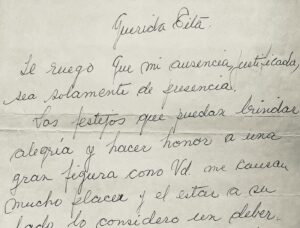 Querida Titá:
Le ruego que mi ausencia, justificada,
sea solamente de presencia.
Los festejos que puedan brindar
alegría y hacer honor a una
gran figura como Vd. me causan
mucho placer y el estar a su
lado lo considero un deber.